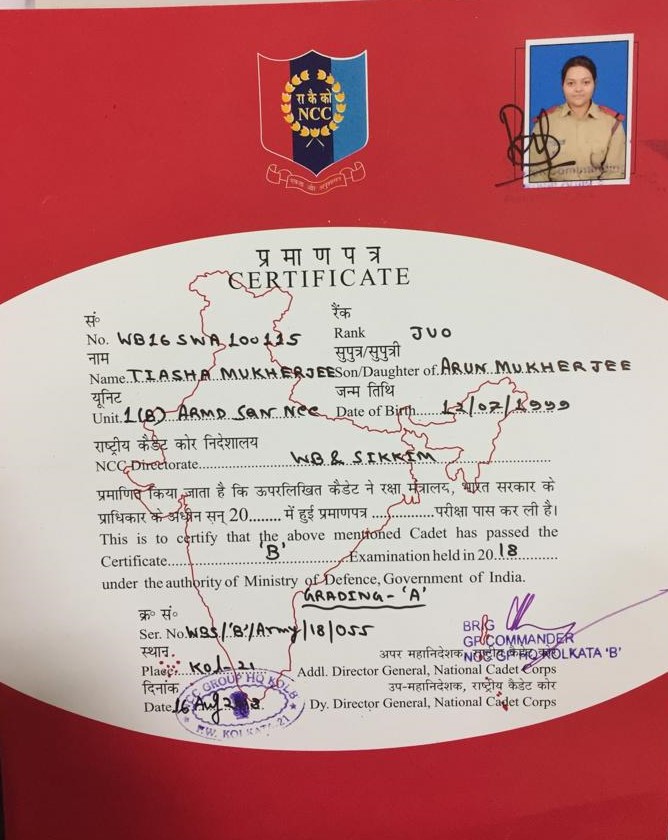 रा कै को
NCC
एकता और अनुशासन
प्रमाणपत्र
CERTIFICATE
सं॰
No. WB16 SWA 100115
रैंक
Rank JUO
नाम
Name TIASHA MUKHERJEE
सुपुत्र/सुपुत्री
Son/Daughter of ARUN MUKHERJEE
यूनिट
Unit 1(B) ARMD SQN NCC
जन्म तिथि
Date of Birth 12/07/1999
राष्ट्रीय कैडेट कोर निदेशालय
NCC Directorate WB & SIKKIM
प्रमाणित किया जाता है कि ऊपरलिखित कैडेट ने रक्षा मंत्रालय, भारत सरकार के
प्राधिकार के अधीन सन् 20........ में हुई प्रमाणपत्र .............. परीक्षा पास कर ली है।
This is to certify that the above mentioned Cadet has passed the
Certificate 'B' Examination held in 2018
under the authority of Ministry of Defence, Government of India.
GRADING - 'A'
क्र॰ सं॰
Ser. No. WBS/'B'/Army/18/055
BRIG
GP COMMANDER
NCC GP HQ KOLKATA 'B'
स्थान
Place Kol-21
अपर महानिदेशक, राष्ट्रीय कैडेट कोर
Addl. Director General, National Cadet Corps
दिनांक
Date 16 Aug 2018
उप-महानिदेशक, राष्ट्रीय कैडेट कोर
Dy. Director General, National Cadet Corps
NCC GROUP HQ KOL B
F.W. KOLKATA 21